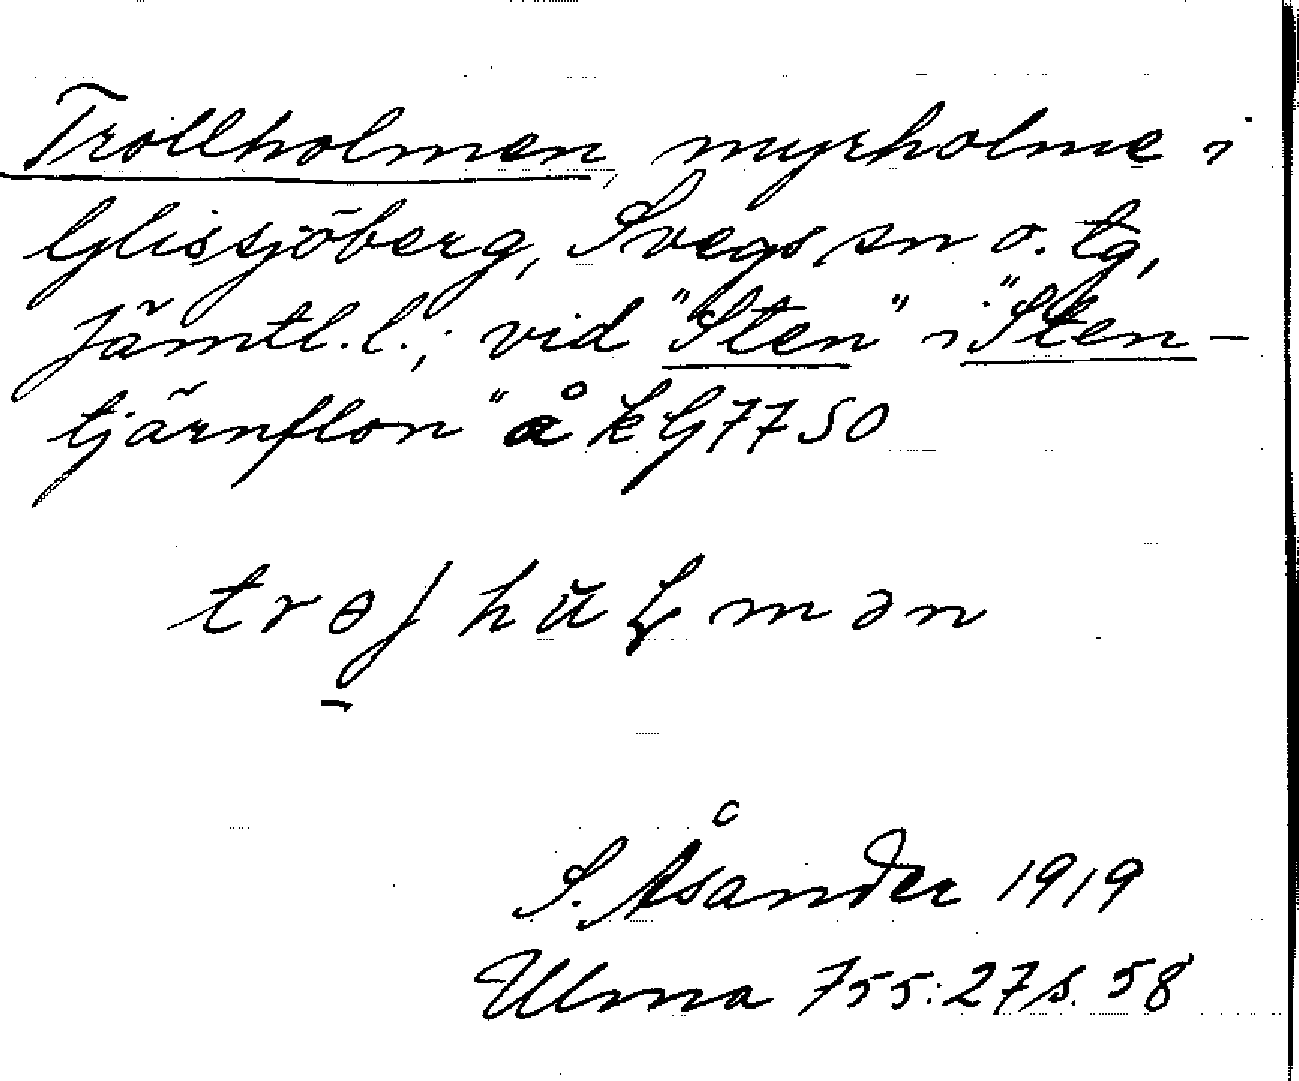 Trollholmen, myrholme i
Glissjöberg, Svegs sn o. tg,
Jämtl. l.; vid "Sten" i "Sten-
tjärnflon" å kG7750
S. Åsander 1919
Ulma 755:27 s. 58